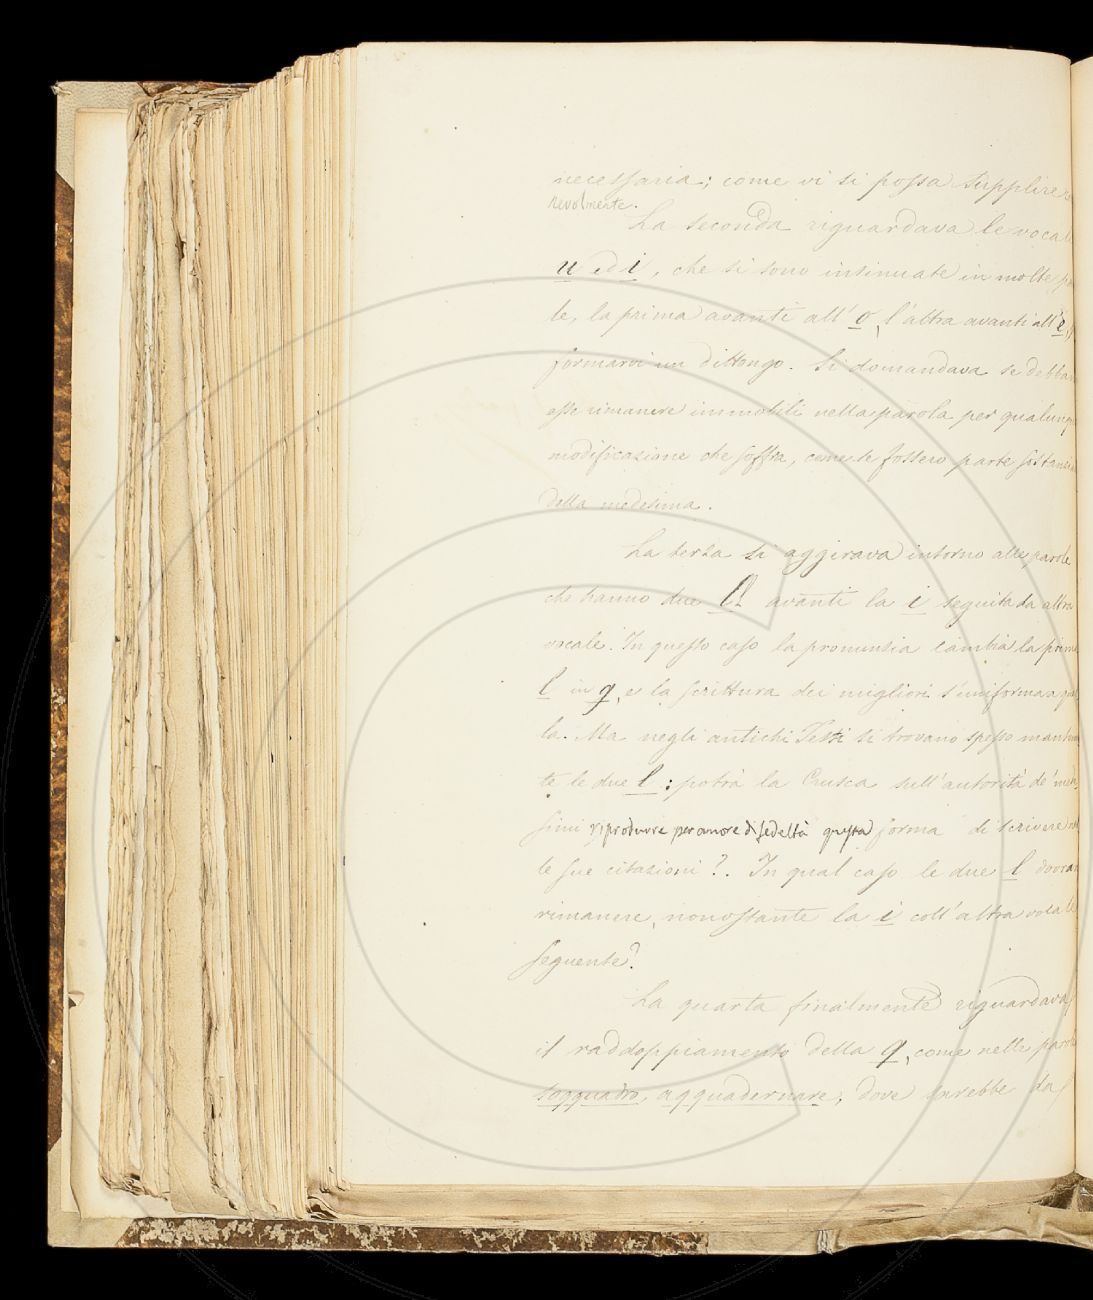 necessaria; come vi si possa supplire
revolmente.
La seconda riguardava le vocali
u ed i, che si sono insinuate in molte
le, la prima avanti all' o, l'altra avanti all' e,
formarvi un dittongo. Si domandava se debban
esse rimanere immobili nella parola per qualunque
modificazione che soffra, come se fossero parte
della medesima.
La terza si aggirava intorno alle parole
che hanno due ll avanti la i seguita da altra
vocale. In questo caso la pronunzia cambia la prima
l in g, e la scrittura dei migliori s'uniforma a
la. Ma negli antichi Testi si trovano spesso
te le due l: potrà la Crusca sull'autorità de'
simi riprodurre per amore di fedeltà questa forma di scrivere
le sue citazioni? In qual caso le due l
rimanere, nonostante la i coll'altra vocale
seguente?
La quarta finalmente riguardava
il raddoppiamento della q, come nelle parole
soqquadro, aqquadernare, dove sarebbe da